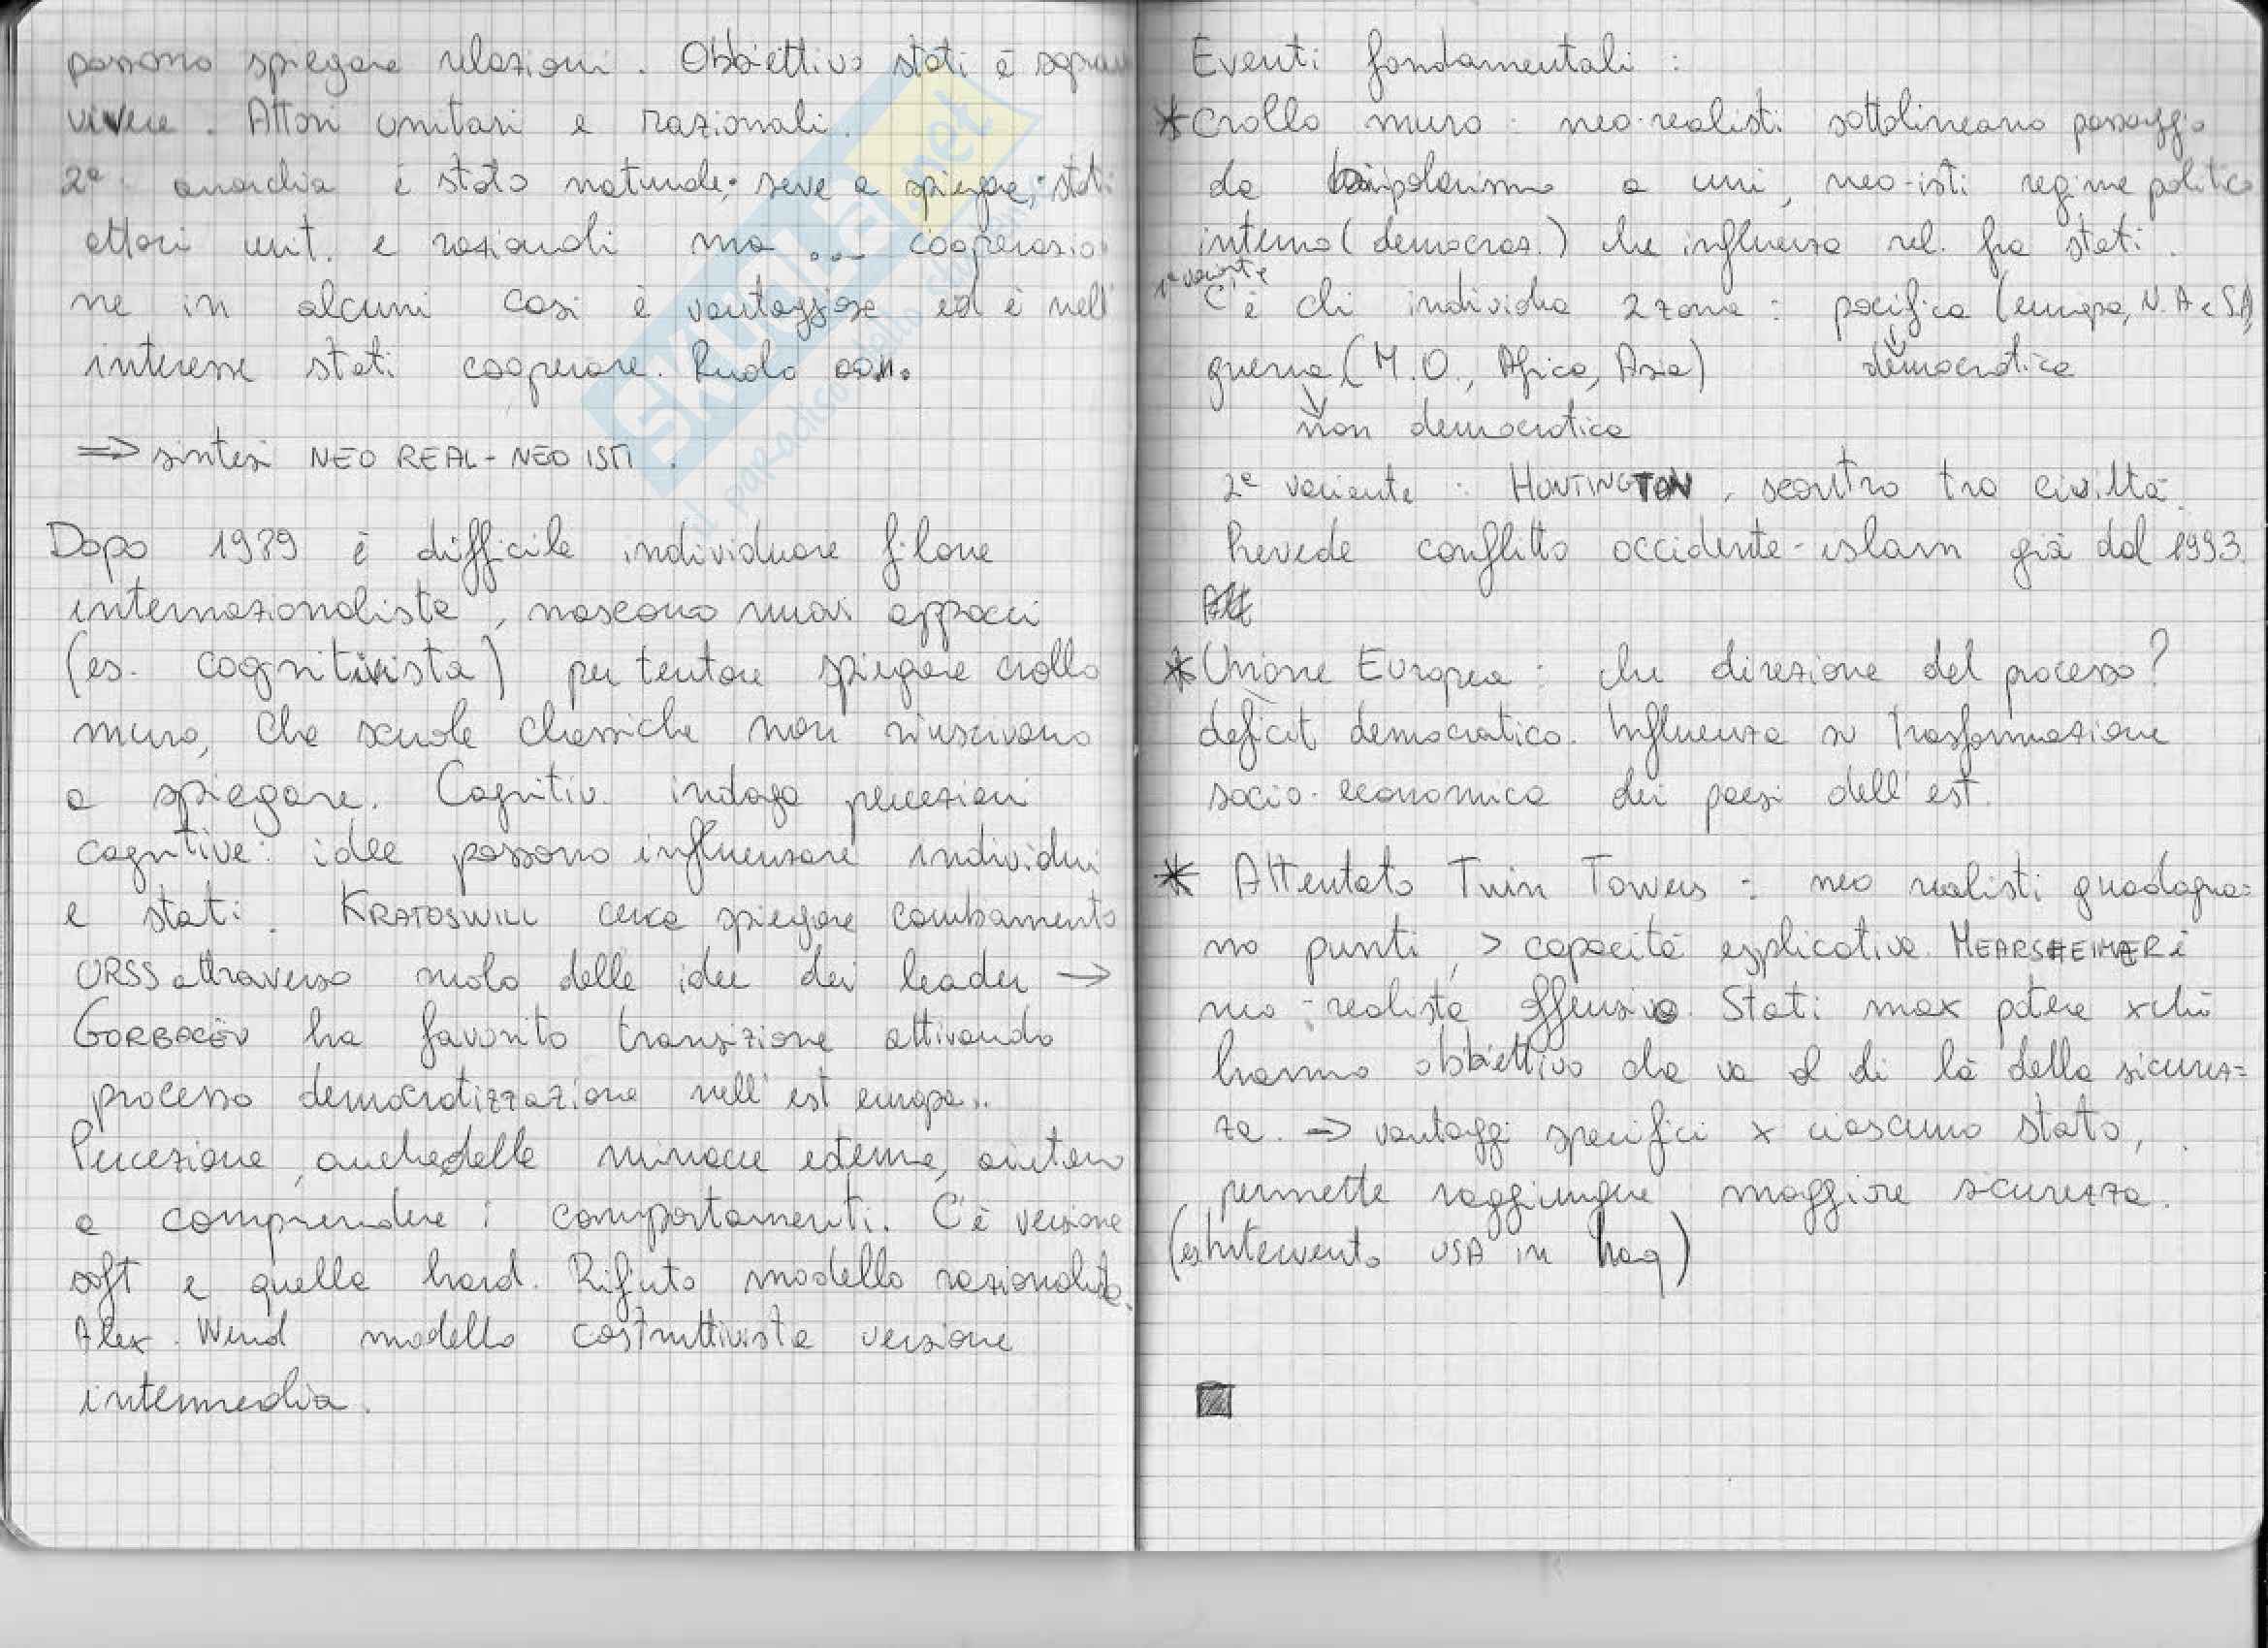 possono spiegare relazioni. Obbiettivo stati è soprav
vivere. Attori unitari e razionali.
2ª: anarchia è stato naturale; serve a spiegare; stati
attori unit. e razionali ma ... cooperazio
ne in alcuni casi è vantaggiosa ed è nell'
interesse stati cooperare. Ruolo oon.
⇒ sintesi NEO REAL - NEO ISTI.
Dopo 1989 è difficile individuare filone
internazionalista, nascono nuovi approcci
(es. cognitivista) per tentare spiegare crollo
muro, che scuole classiche non riuscivano
a spiegare. Cognitiv. indaga percezioni
cognitive: idee possono influenzare individui
e stati. KRATOSWILL cerca spiegare cambiamento
URSS attraverso ruolo delle idee dei leader →
GORBACËV ha favorito transizione attivando
processo democratizzazione nell'est europa..
Percezione, anche delle minacce esterne, aiutano
a comprendere i comportamenti. C'è versione
soft e quella hard. Rifiuto modello razionalista.
Alex. Wend modello costruttivista versione
intermedia.
Eventi fondamentali :
* Crollo muro : neo-realisti sottolineano passaggio
da bipolarismo a uni, neo-isti regime politico
interno (democraz.) che influenza rel. fra stati.
1ª variante
C'è chi individua 2 zone : pacifica (europa, N.A e S.A),
guerra (M.O., Africa, Asia) democratica
non democratica
2ª variante : HUNTINGTON, scontro tra civiltà.
Prevede conflitto occidente-islam già dal 1993.
* Unione Europea : che direzione del processo?
deficit democratico. Influenza su trasformazione
socio-economica dei paesi dell'est.
* Attentato Twin Towers : neo realisti guadagna=
no punti, > capacità esplicativa. MEARSHEIMER è
neo-realista offensivo. Stati max potere xchè
hanno obbiettivo che va al di là della sicurez=
za. ⇒ vantaggi specifici x ciascuno stato,
permette raggiungere maggiore sicurezza.
(es Intervento USA in Iraq)
SKUOLA.net
il paradiso dello studente